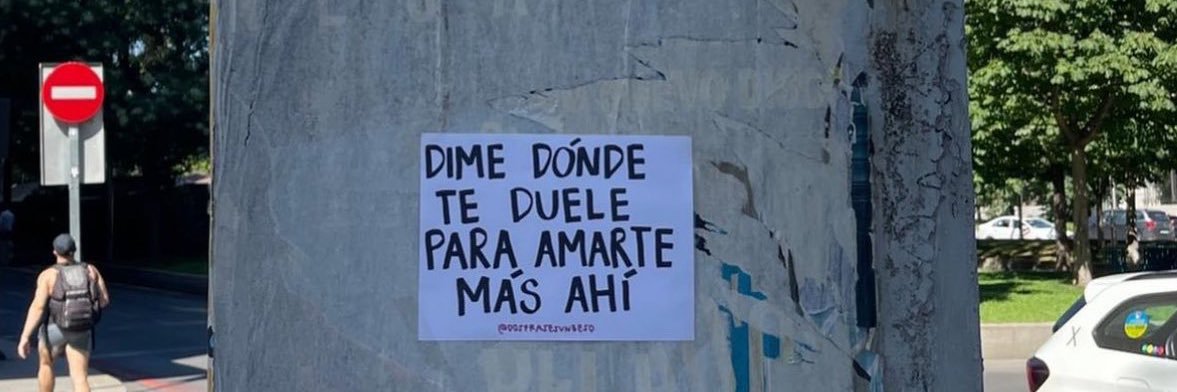 DIME DÓNDE
TE DUELE
PARA AMARTE
MÁS AHÍ